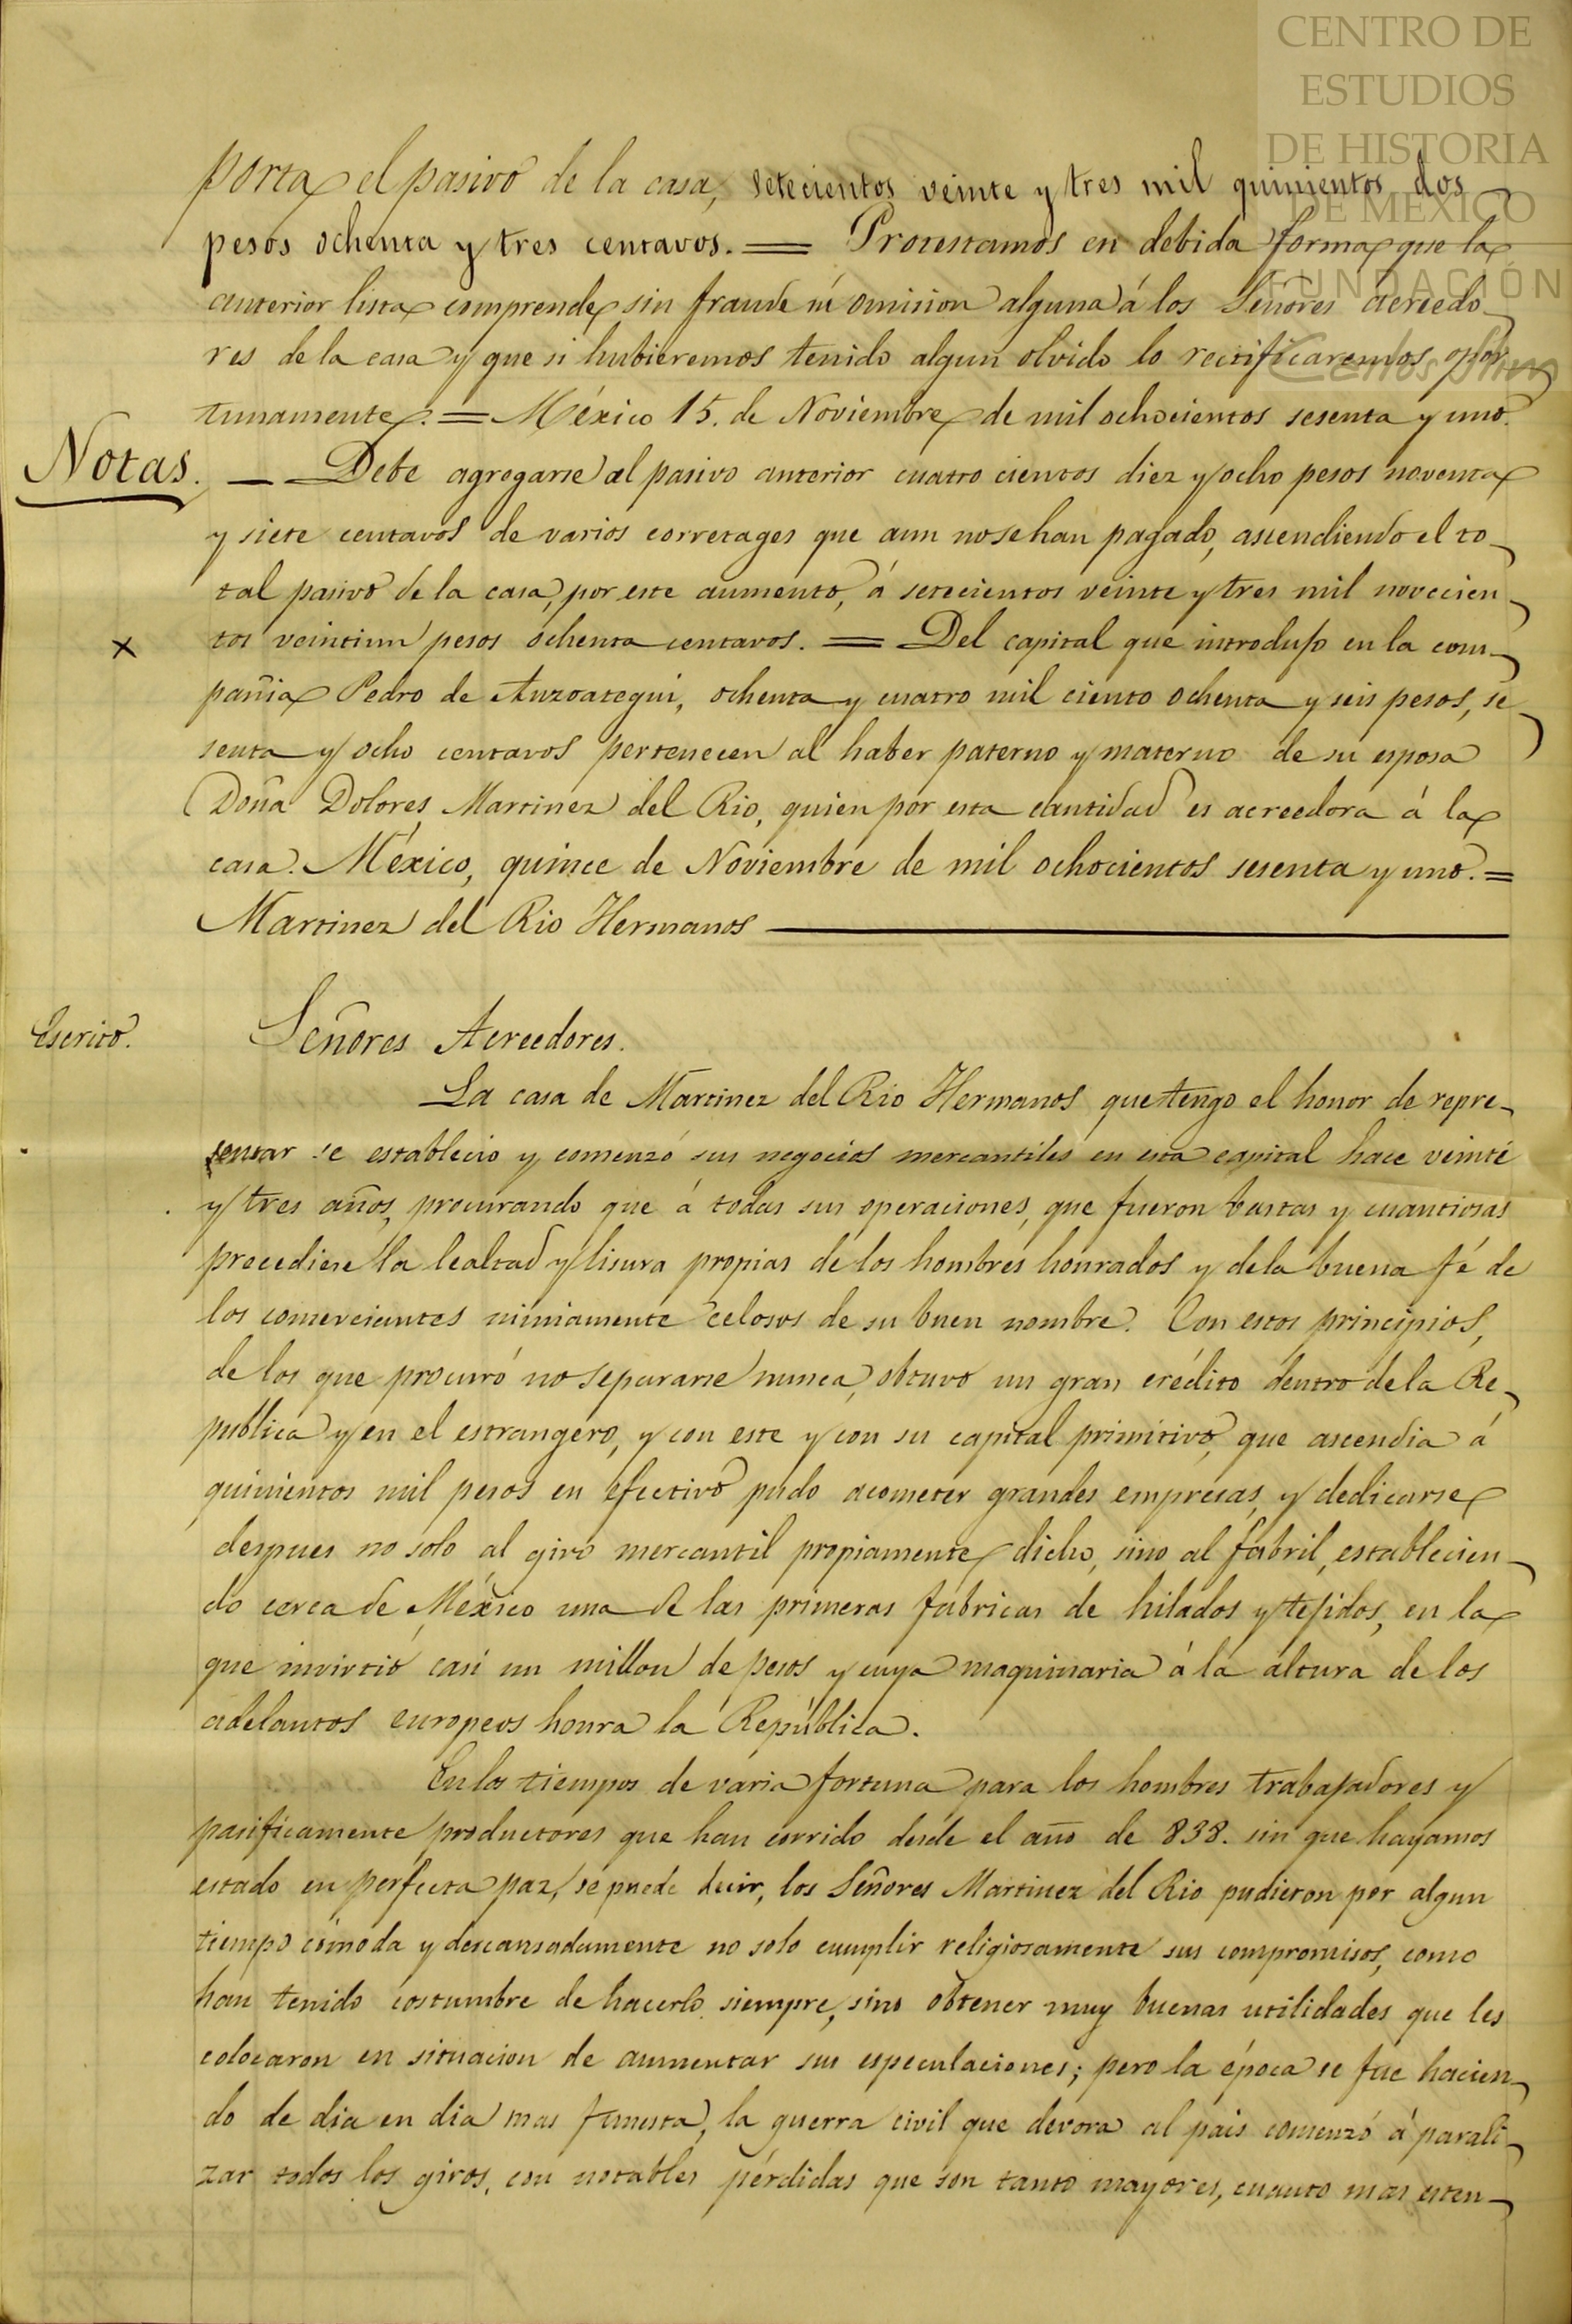 CENTRO DE
ESTUDIOS
DE HISTORIA
DE MÉXICO
FUNDACIÓN
Carlos Slim
porta el pasivo de la casa, setecientos veinte y tres mil quinientos dos
pesos ochenta y tres centavos. = Protestamos en debida forma que la
anterior lista comprende sin fraude ni omision alguna á los Señores acreedo-
res de la casa y que si hubieremos tenido algun olvido lo rectificaremos opor-
tunamente. = México 15. de Noviembre de mil ochocientos sesenta y uno.
Notas. — Debe agregarse al pasivo anterior cuatro cientos diez y ocho pesos noventa
y siete centavos de varios corretages que aun no se han pagado, ascendiendo el to-
tal pasivo de la casa, por este aumento, á setecientos veinte y tres mil novecien-
x tos veintiun pesos ochenta centavos. = Del capital que introdujo en la com-
pañia Pedro de Anzoategui, ochenta y cuatro mil ciento ochenta y seis pesos, se-
senta y ocho centavos pertenecen al haber paterno y materno de su esposa
Doña Dolores Martinez del Rio, quien por esta cantidad es acreedora á la
casa. México, quince de Noviembre de mil ochocientos sesenta y uno. =
Martinez del Rio Hermanos —
Escrito. Señores Acreedores.
La casa de Martinez del Rio Hermanos que tengo el honor de repre-
sentar se establecio y comenzó sus negocios mercantiles en esta capital hace veinte
y tres años, procurando que á todas sus operaciones, que fueron bastas y cuantiosas
precediese la lealtad y lisura propias de los hombres honrados y de la buena fé de
los comerciantes nimiamente celosos de su buen nombre. Con estos principios,
de los que procuró no separarse nunca, obtuvo un gran crédito dentro de la Re-
publica y en el estrangero, y con este y con su capital primitivo, que ascendia á
quinientos mil pesos en efectivo pudo acometer grandes empresas, y dedicarse
despues no solo al giro mercantil propiamente dicho, sino al fabril, establecien-
do cerca de México una de las primeras fábricas de hilados y tejidos, en la
que invirtió casi un millon de pesos y cuya maquinaria á la altura de los
adelantos europeos honra la República.
En los tiempos de varia fortuna para los hombres trabajadores y
pacificamente productores que han corrido desde el año de 838. sin que hayamos
estado en perfecta paz, se puede decir, los Señores Martinez del Rio pudieron por algun
tiempo cómoda y descansadamente no solo cumplir religiosamente sus compromisos, como
han tenido costumbre de hacerlo siempre, sino obtener muy buenas utilidades que les
colocaron en situacion de aumentar sus especulaciones; pero la época se fue hacien-
do de dia en dia mas funesta, la guerra civil que devora al pais comenzó á parali-
zar todos los giros, con notables pérdidas que son tanto mayores, cuanto mas esten-